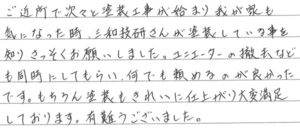 ご近所で次々と塗装工事が始まり我が家も
気になった時、三和技研さんが塗装している事を
知りさっそくお願いしました。ユニエーターの撤去なども
同時にしてもらい、何でも頼めるのが良かった
です。もちろん塗装もきれいに仕上がり大変満足
しております。有難うございました。